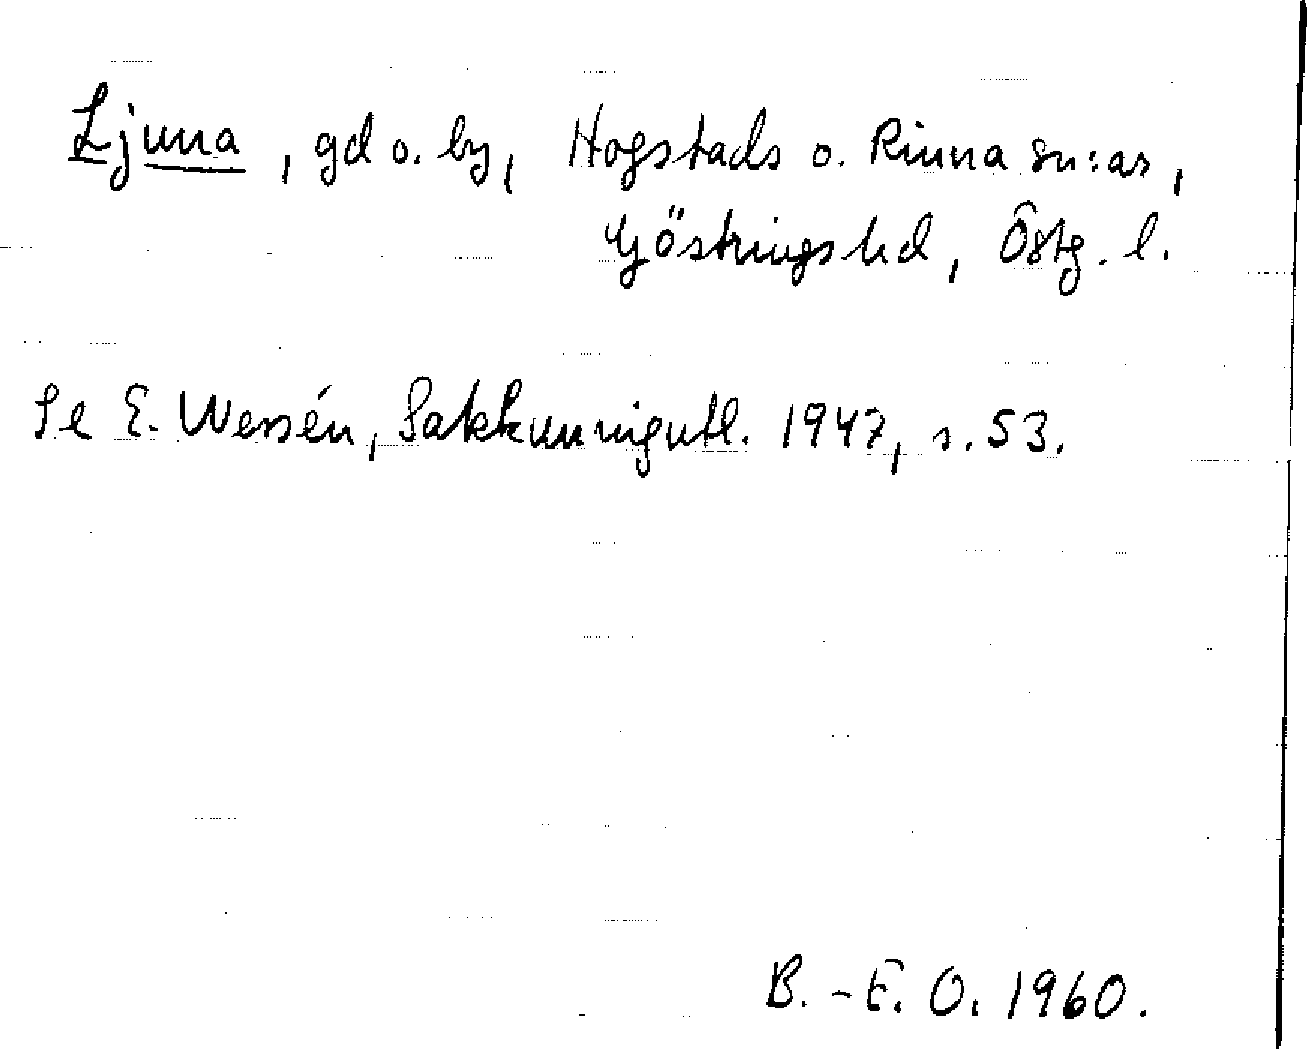 Ljunna, gd o. by, Hogstads o. Rinna sn:ar,
Göstringshd, Östg. l.
Se E. Wessén, Sakkunnigutl. 1947, s. 53.
B.-E. O. 1960.